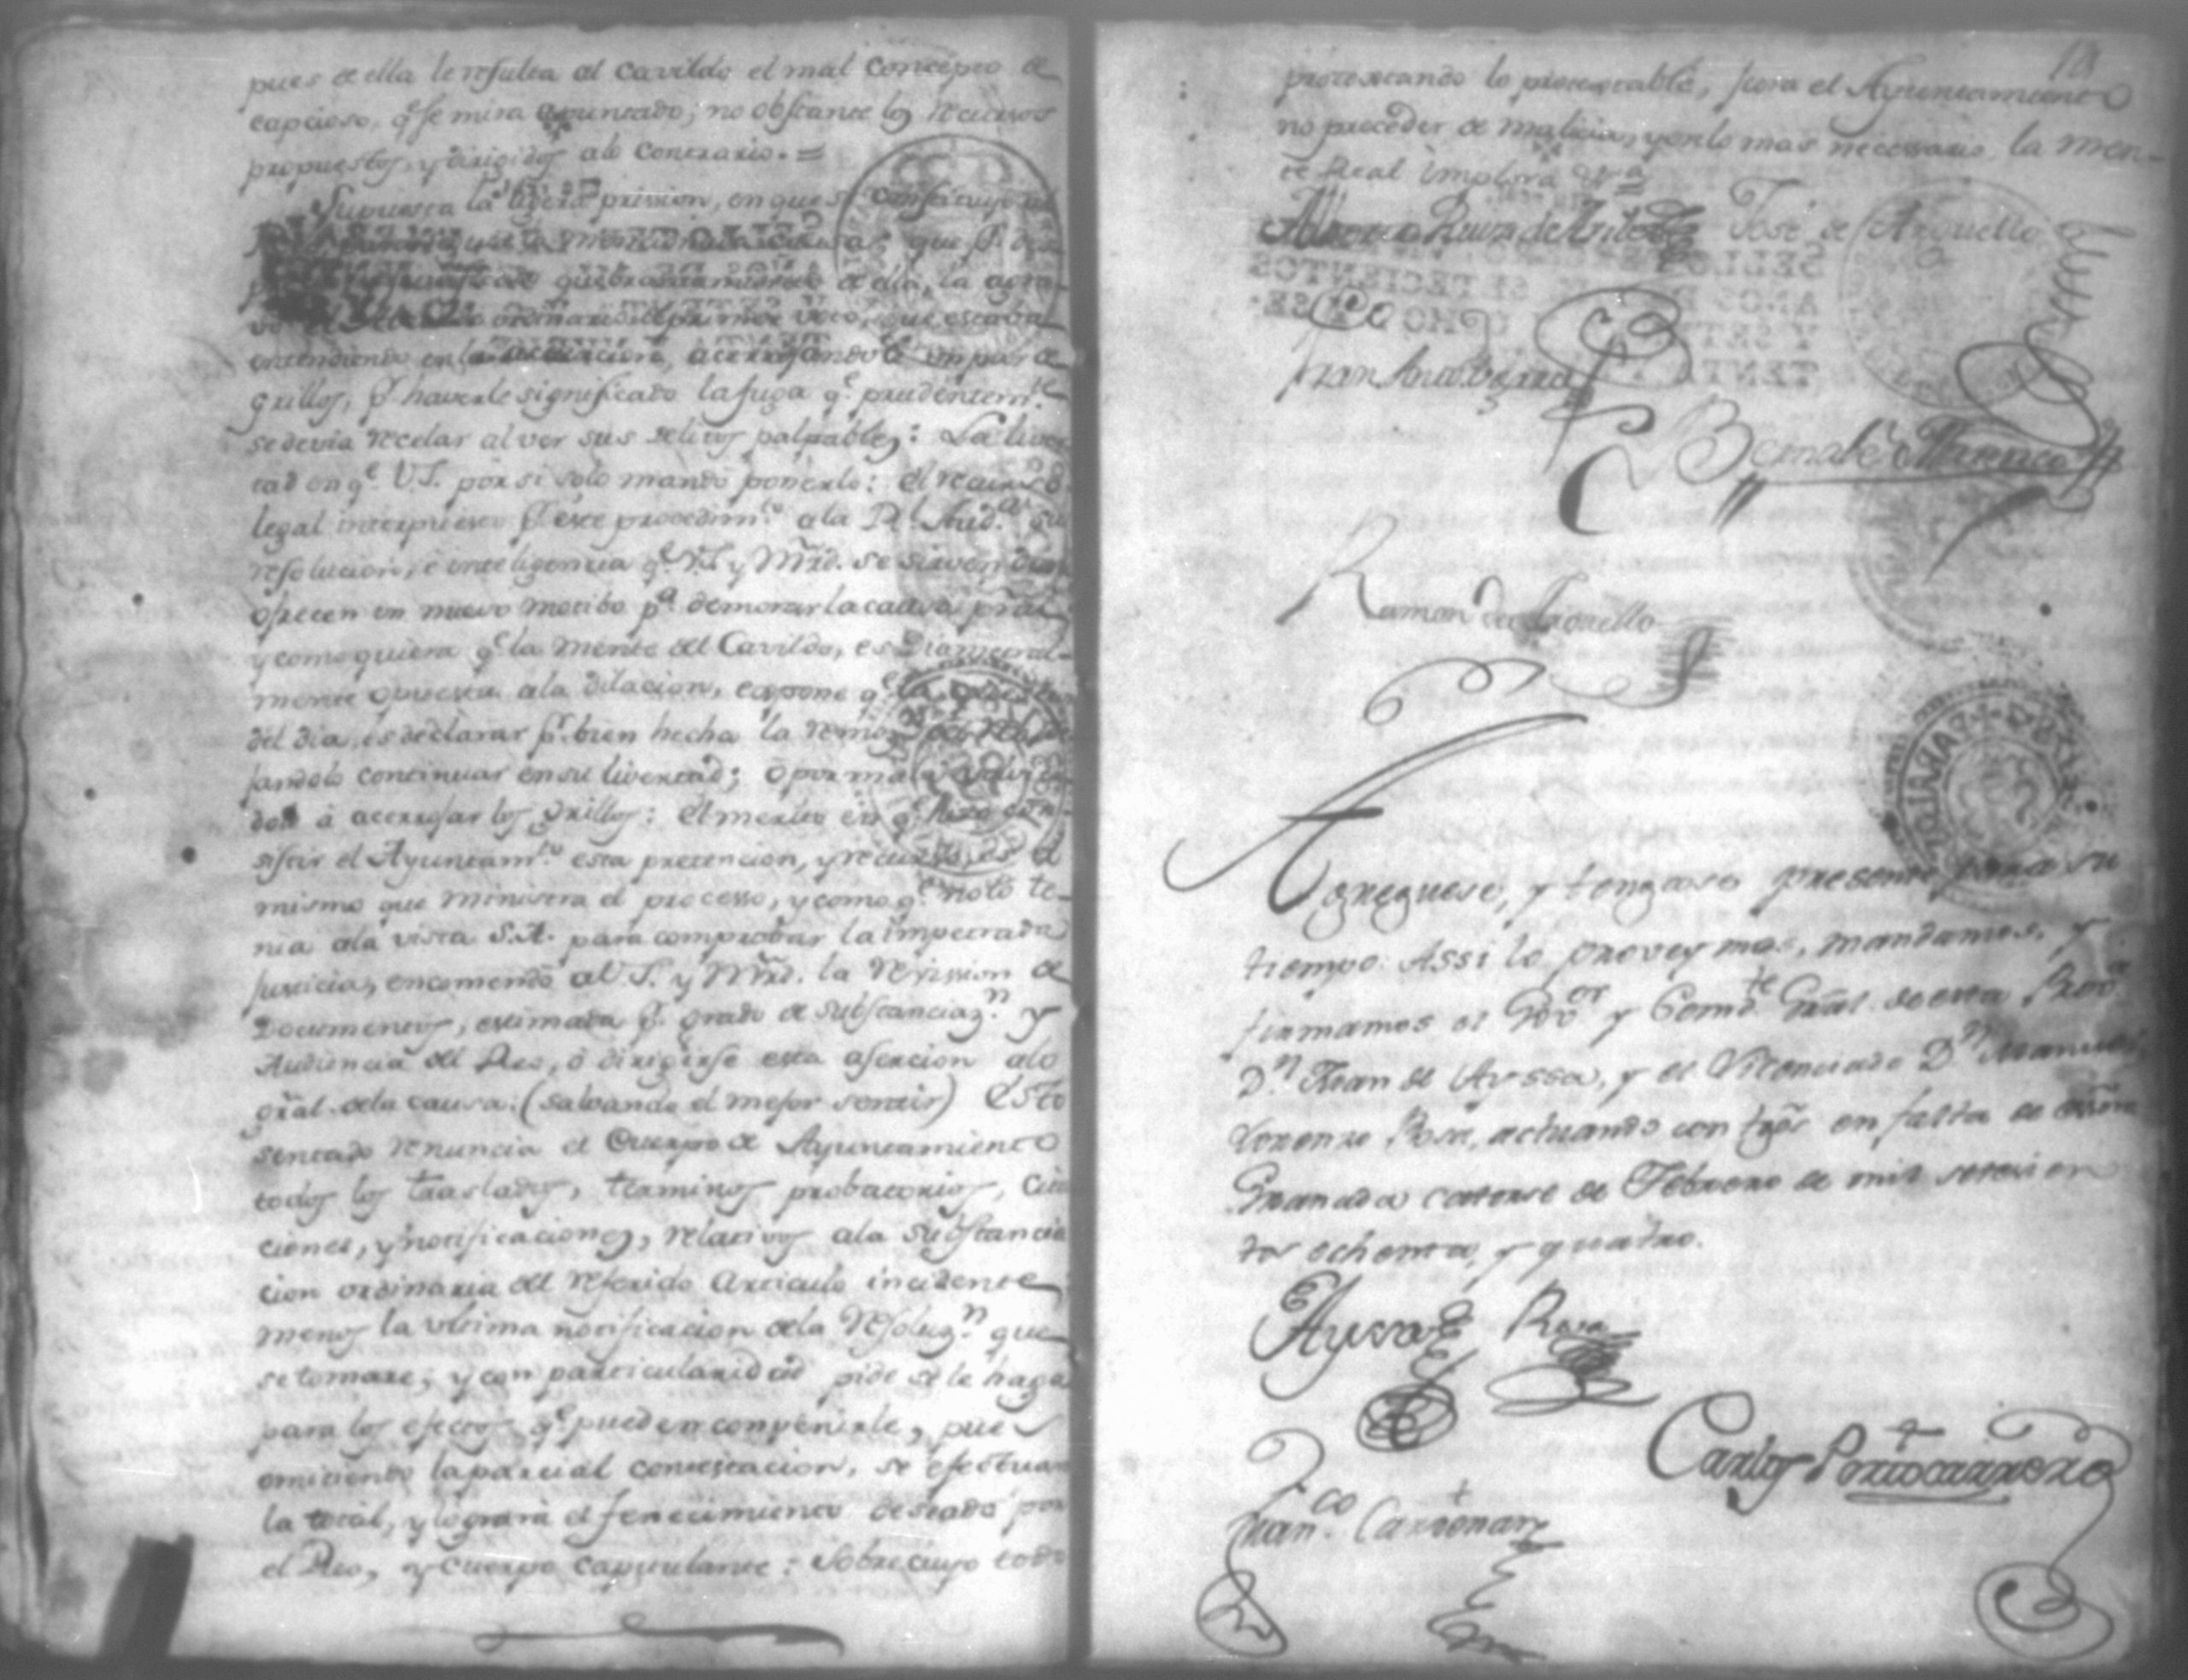 pues de ella le resulta al Cavildo el mal concepto de
capcioso, qe. se mira apuntado, no obstante los recursos
propuestos, y dirigidos alo contrario. =
Supuesta la ligera prission, en que se constituyo
que pr.
quebrantamiento de ella, la agra-
vó ordinario de primer voto, que estava
entendiendo en la actuacion, acerrojandole un par de
grillos, pr. haverle significado la fuga qe. prudentemte.
se devia recelar al ver sus delitos palpables: La liver
tad en qe. V.S. por si solo mandó ponerlo: el recurso
legal interpuesto pr. este procedimto. ala Rl. Audª. su
resolucion, é inteligencia qe. V.S. y Mrd. se sirven
ofrecen un nuevo motibo pª. demorar la causa pral
y como quiera qe. la mente del Cavildo, es Diametral-
mente opuesta ala dilacion, expone qe. la
del dia, es declarar pr. bien hecha la
jandolo continuar en su livertad; ó por mala
dole á acerrojar los grillos: el merito en qe. hizo con-
sistir el Ayuntamto. esta pretencion, y recurso, es el
mismo que ministra el processo, y como qe. no lo te-
nia ala vista S.A. para comprobar la impetrada
justicia, encomendó al V.S. y Mrd. la Revission de
Documentos, estimada pr. grado de substanciazn. y
Audiencia del Reo, ó dirigirse esta asercion alo
gral. dela causa: (salvando el mejor sentir) Esto
sentado renuncia el Cuerpo de Ayuntamiento
todos los traslados, terminos probatorios, cita
ciones, y notificaciones, relativos ala substancia
cion ordinaria del referido articulo incidente,
menos la ultima notificacion dela Resoluzn. que
se tomare, y con particularidad pide se le haga
para los efectos qe. pueden convenirle, pues
omitiendo la parcial contestacion, se efectuará
la total, y logrará el fenecimiento deseado por
el Reo, y cuerpo capitulante: Sobre cuyo todo
18
protextando lo protextable, jura el Ayuntamiento
no proceder de malicia, y en lo mas necessario la men-
te Real implora Vª =
José de Arguello
Fran Antº
Bernabé
Ramon de Arguello
Agreguese, y tengase presente para su
tiempo. Assi lo proveymos, mandamos, y
firmamos el Govor. y Comdte. Gral. de esta Provª.
Dn. Juan de Ayssa, y el Licenciado Dn. Manuel
Lorenzo Rosa, actuando con tgos en falta de essno
Granada catorse de Febrero de mil setesien
tos ochenta, y quatro.
Ayssa Rosa
Carlos Portocarrero
Franco. Cardenas